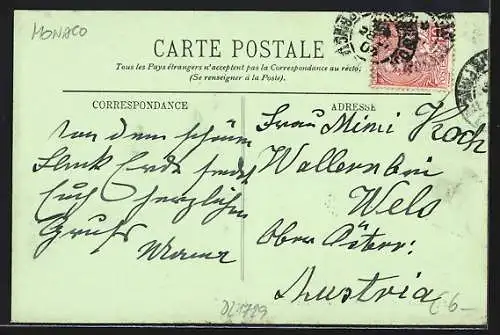 MONACO
CARTE POSTALE
Tous les Pays étrangers n'acceptent pas la Correspondance au recto;
(Se renseigner à la Poste).
CORRESPONDANCE
ADRESSE
Von dem schönen
Fleck Erde sendet
Euch herzlichen
Gruss
Frau Mimi Koch
Wallern bei
Wels
Ober Öster:
Austria